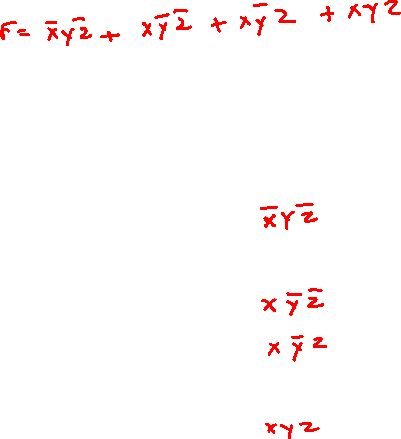 F = x̅yz̅ + xy̅z̅ + xy̅z + xyz
x̅yz̅
xy̅z̅
xy̅z
xyz